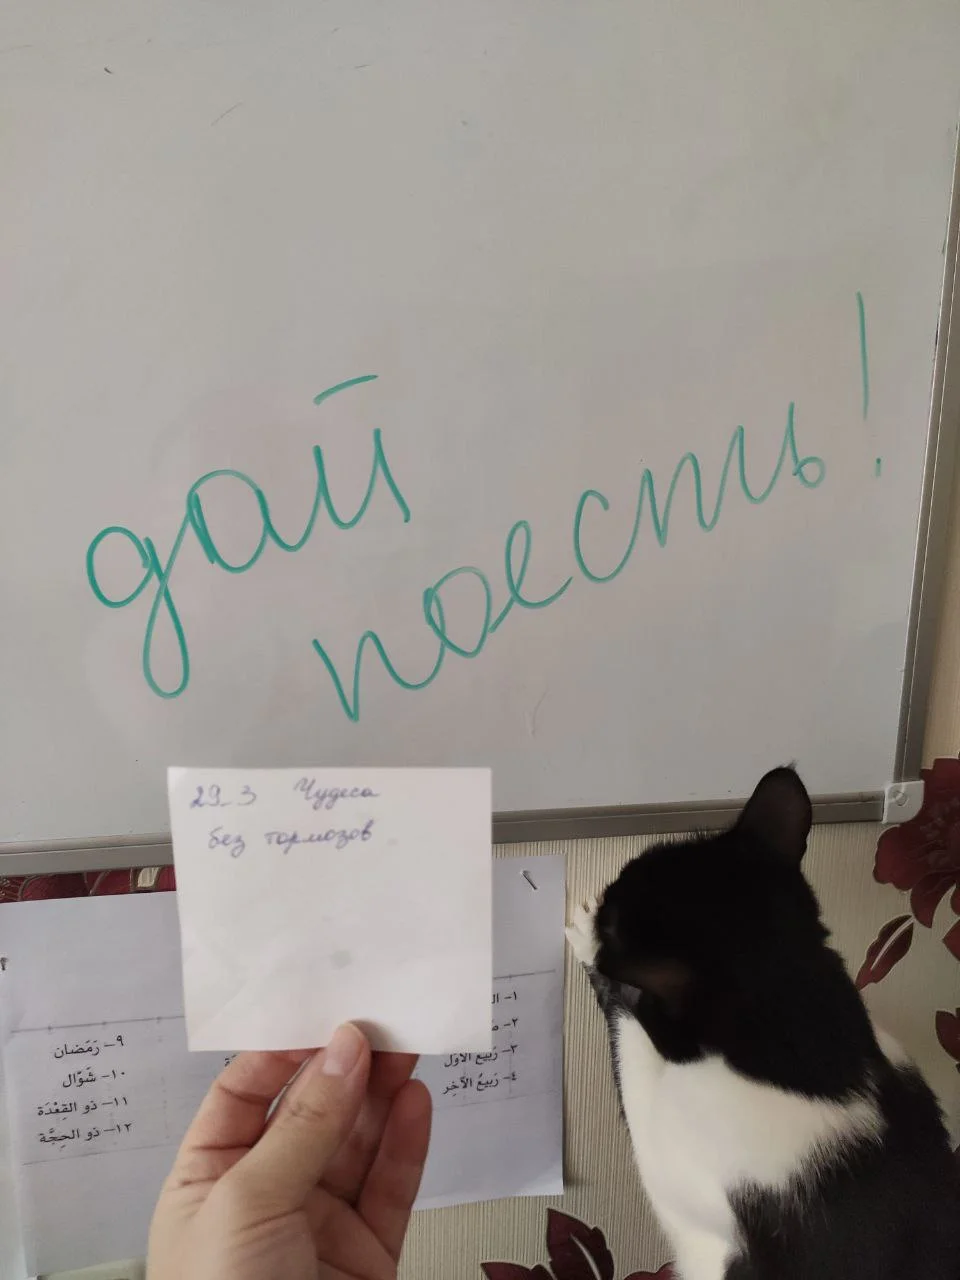 дай
поесть!
29_3 Чудеса
без тормозов
١- ال
٢-
٣- رَبيعُ الأَوَّل
٤- رَبيعُ الآخِر
٩- رَمَضان
١٠- شَوّال
١١- ذو القِعْدَة
١٢- ذو الحِجَّة